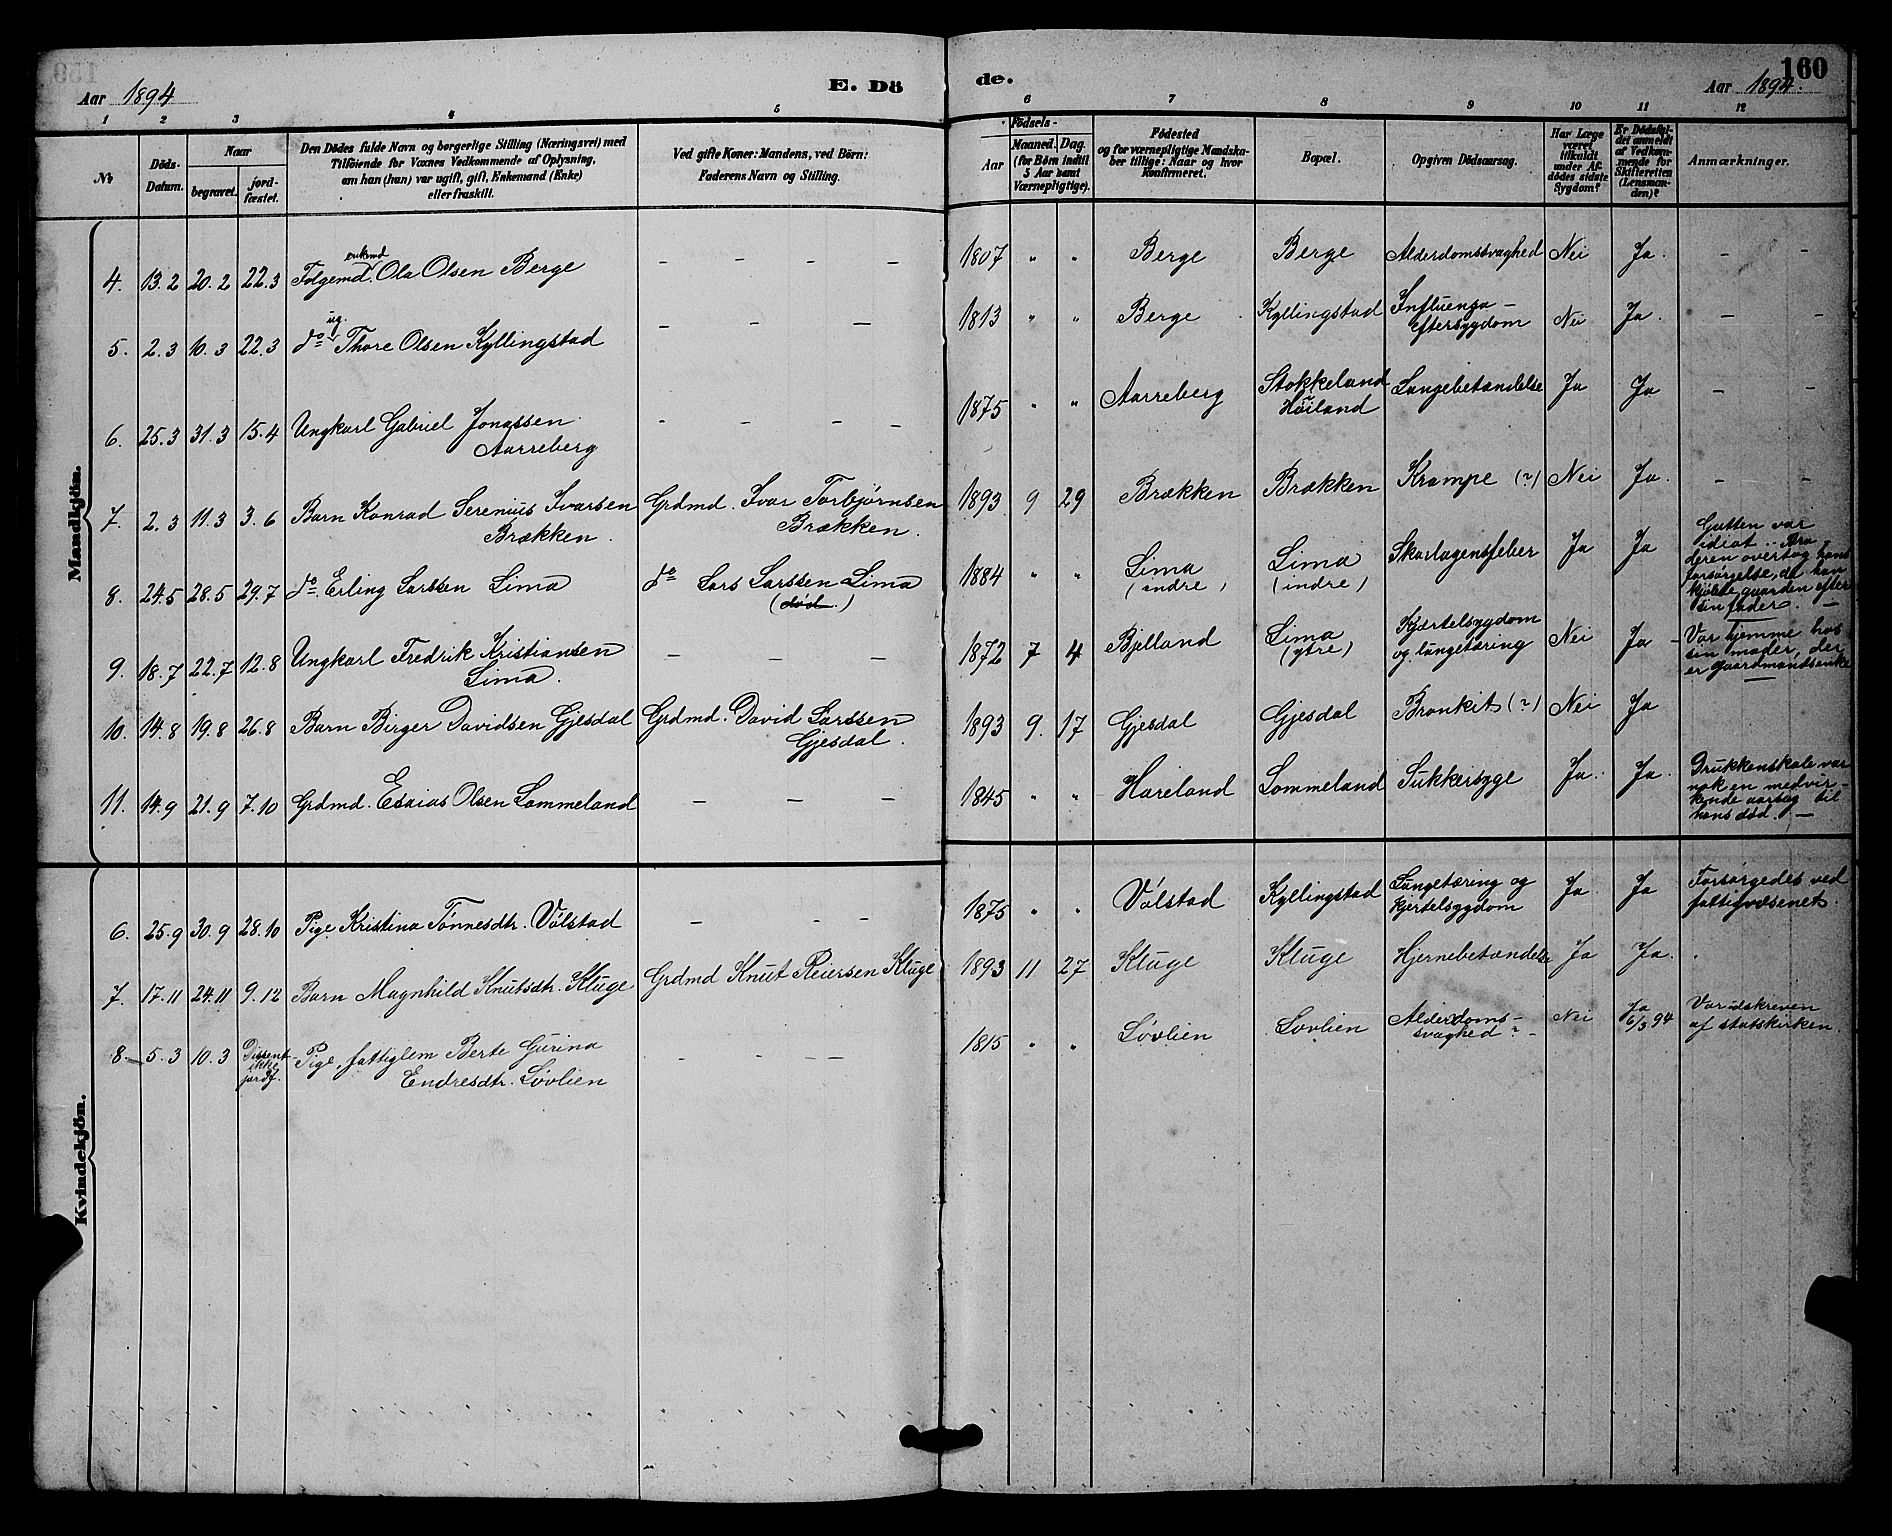 Aar 1894
E. Dö
de.
160
Aar 1894.
1 2 3 4 5 6 7 8 9 10 11 12
№
Döds-
Datum.
Naar
begravet.
jord-
fæstet.
Den Dödes fulde Navn og borgerlige Stilling (Næringsvei) med
Tilföiende for Voxnes Vedkommende af Oplysning,
om han (hun) var ugift, gift, Enkemand (Enke)
eller fraskilt.
Ved gifte Koner: Mandens, ved Börn:
Faderens Navn og Stilling.
Födsels-
Aar
Maaned. Dag.
(for Börn indtil
5 Aar samt
Værnepligtige).
Födested
og for værnepligtige Mandska-
ber tillige: Naar og hvor
Konfirmeret.
Bopæl.
Opgiven Dödsaarsag.
Har Læge
været
tilkaldt
under Af-
dödes sidste
Sygdom?
Er Dödsfal-
det anmeldt
af Vedkom-
mende for
Skifteretten
(Lensman-
den)?
Anmærkninger.
Mandkjön.
enkmd
4. 13.2 20.2 22.3 Folgemd. Ola Olsen Berge — — — — 1807 " " Berge Berge Alderdomssvaghed Nei Ja. — —
ug.
5. 2.3 10.3 22.3 do Thore Olsen Kyllingstad — — — 1813 " " Berge Kyllingstad Influenza -
Eftersygdom Nei Ja. — —
6. 25.3 31.3 15.4 Ungkarl Gabriel Jonassen
Aarreberg — — — — 1875 " " Aarreberg Stokkeland
Høiland Lungebetændelse Ja Ja — —
7. 2.3 11.3 3.6 Barn Konrad Serenius Ivarsen
Brækken. Grdmd. Ivar Torbjørnsen
Brækken. 1893 9 29 Brækken Brækken Krampe (?) Nei Ja. — —
8. 24.5 28.5 29.7 do. Erling Larssen Lima do Lars Larssen Lima
(død.) 1884 " " Lima
(indre) Lima
(indre) Skarlagensfeber Ja Ja Gutten var
idiot. Bro
deren overtog hans
forsørgelse, da han
kjøbte gaarden efter
sin fader. —
9. 18.7 22.7 12.8 Ungkarl Fredrik Kristiansen
Lima. — — — 1872 7 4 Bjelland Lima
(ytre) Kjærtelsygdom
og lungetæring Nei Ja - Var hjemme hos
sin moder, der
er gaardmandsenke
10. 14.8 19.8 26.8 Barn Birger Davidsen Gjesdal Grdmd. David Larssen
Gjesdal. 1893 9. 17 Gjesdal Gjesdal Bronkit (?) Nei Ja
11. 14.9 21.9 7.10 Grdmd. Esaias Olsen Lommeland — — — 1845 " " Hareland Lommeland Sukkersyge Ja. Ja. Drukkenskab var
nok en medvir-
kende aarsag til
hans død. —
Kvindekjön.
6. 25.9 30.9 28.10 Pige Kristina Tønnesdtr. Vølstad — — — 1875 " " Vølstad Kyllingstad Lungetæring og
kjertelsygdom Ja Ja Forsørgedes ved
fattigvæsenet.
7. 17.11 24.11 9.12 Barn Magnhild Knutsdtr. Kluge Grdmd Knut Reiersen Kluge 1893 11 27 Kluge Kluge Hjernebetændelse Ja Ja.
8. 5.3 10.3 Dissent
ikke
jordf. Pige, fattiglem Berte Gurina
Endresdtr. Løvlien — — — — 1815 " " Løvlien Lovlien Alderdoms-
svaghed ? Nei Ja
6/3 94 Var udskreven
af statskirken.